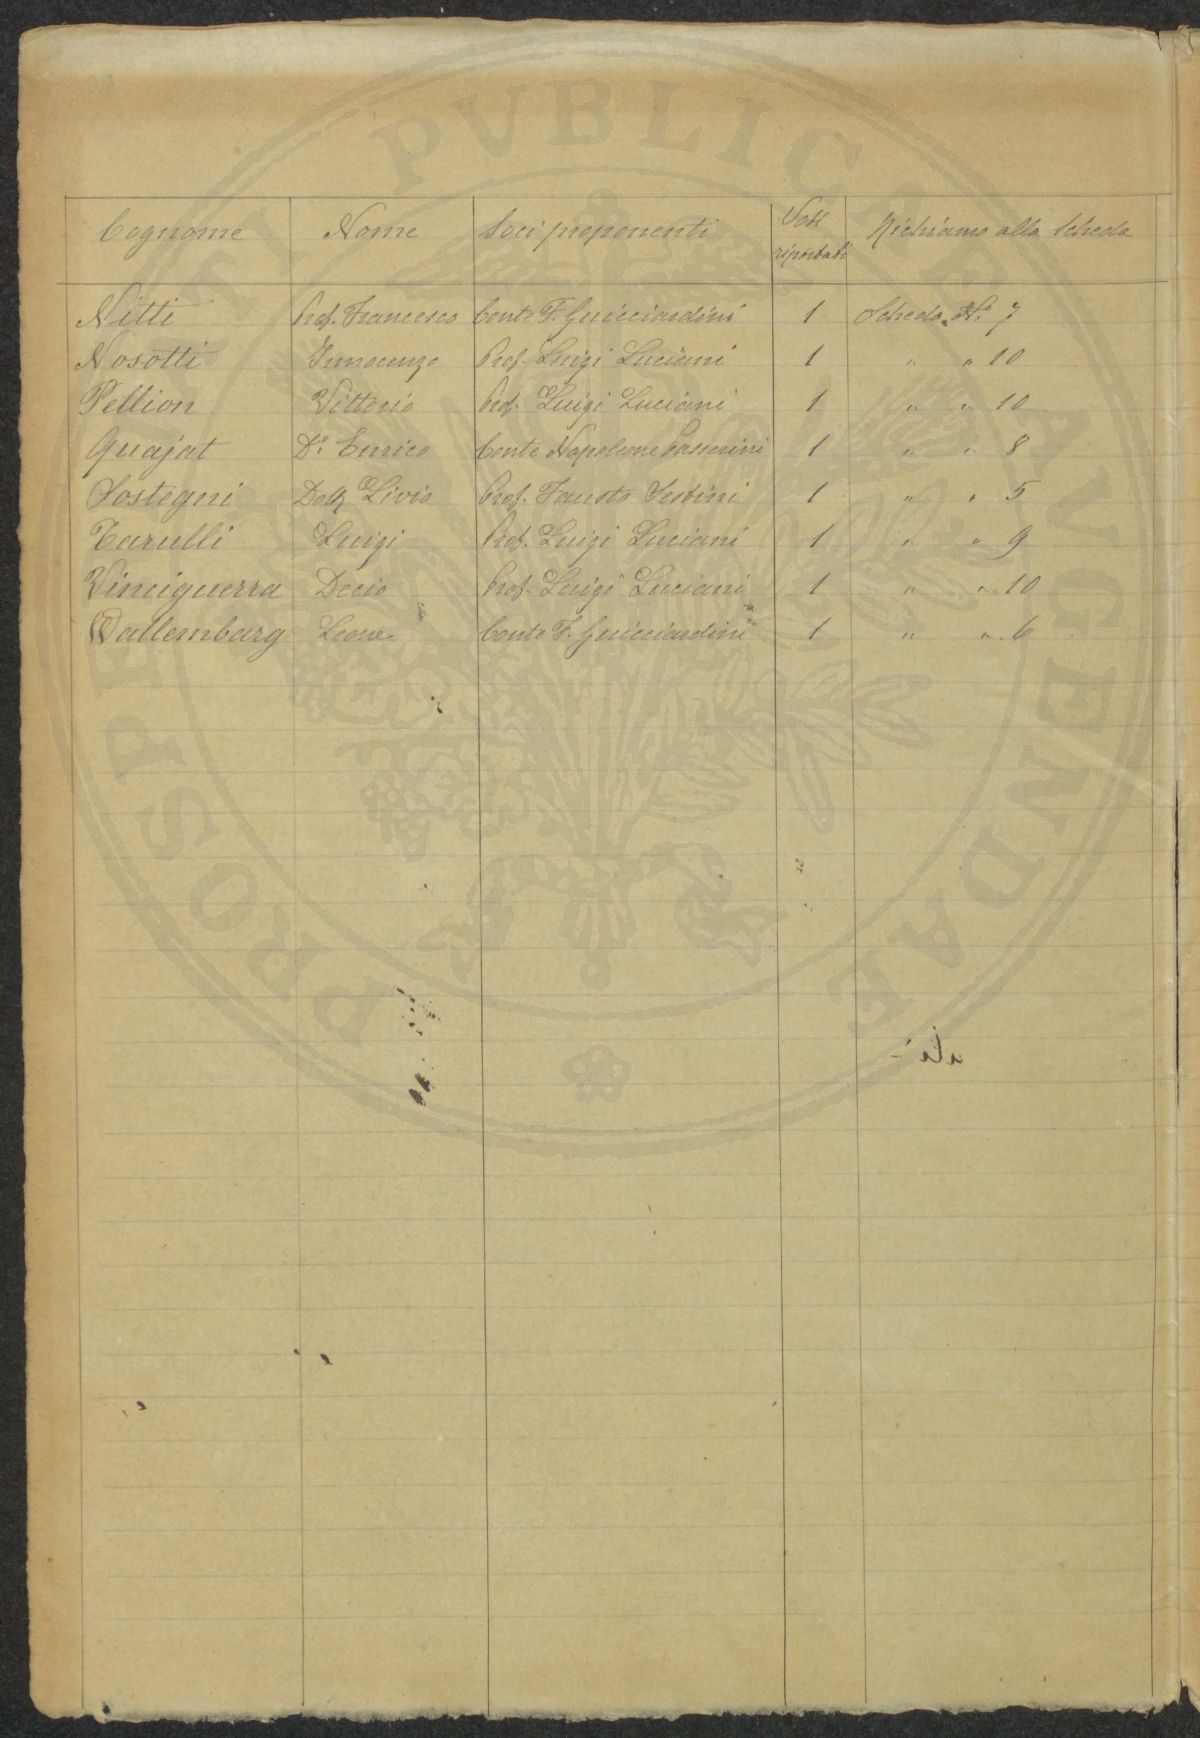 Cognome Nome Soci proponenti Voti riportati Richiamo alla Scheda
Nitti Prof. Francesco Conte F. Guicciardini 1 Scheda N.º 7
Nosotti Innocenzo Prof. Luigi Luciani 1 " " 10
Peltion Vittorio Prof. Luigi Luciani 1 " " 10
Quajat Dr. Enrico Conte Napoleone Passerini 1 " " 8
Sostegni Dott. Livio Prof. Fausto Sestini 1 " " 5
Tarulli Luigi Prof. Luigi Luciani 1 " " 9
Vinciguerra Decio Prof. Luigi Luciani 1 " " 10
Wallembarg Leone Conte F. Guicciardini 1 " " 6
PROSPERITATI PVBLICAE AVGENDAE